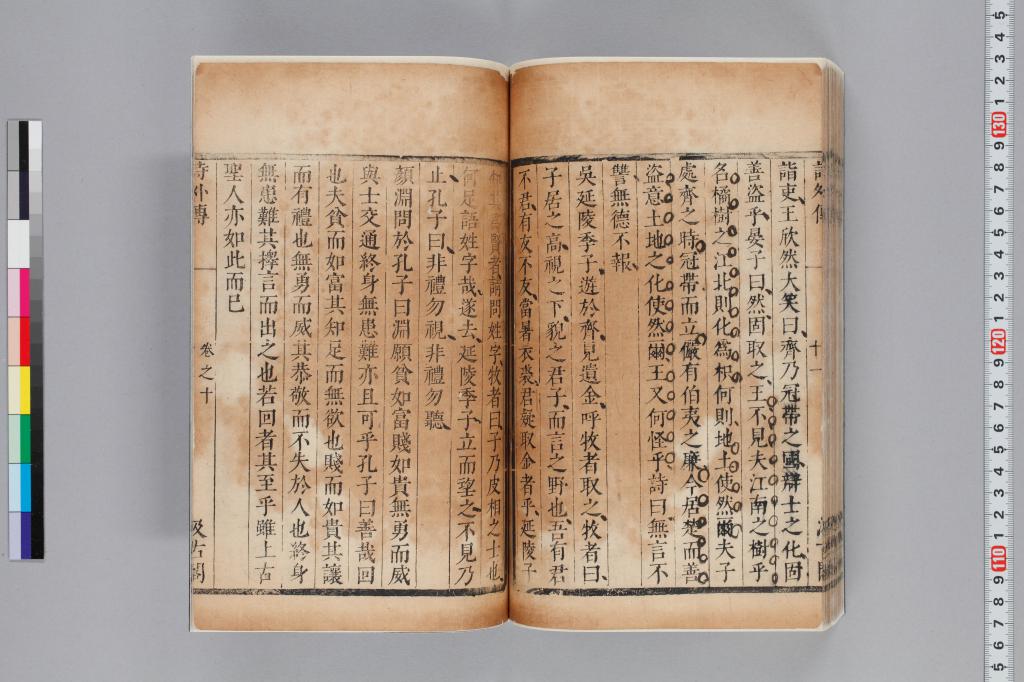 詣吏王欣然大笑曰齊乃冠帶之國辯士之化固
善盜乎晏子曰然固取之王不見夫江南之樹乎
名橘樹之江北則化為枳何則地土使然爾夫子
處齊之時冠帶而立儼有伯夷之廉今居楚而善
盜意土地之化使然爾王又何怪乎詩曰無言不
讐無德不報
吳延陵季子遊於齊見遺金呼牧者取之牧者曰
子居之高視之下貌之君子而言之野也吾有君
不君有友不友當暑衣裘君疑取金者乎延陵子
者請問姓字牧者曰子乃皮相之士也
何足語姓字哉遂去延陵季子立而望之不見乃
止孔子曰非禮勿視非禮勿聽
顏淵問於孔子曰淵願貧如富賤如貴無勇而威
與士交通終身無患難亦且可乎孔子曰善哉回
也夫貧而如富其知足而無欲也賤而如貴其讓
而有禮也無勇而威其恭敬而不失於人也終身
無患難其擇言而出之也若回者其至乎雖上古
聖人亦如此而已
詩外傳
卷之十
汲古閣